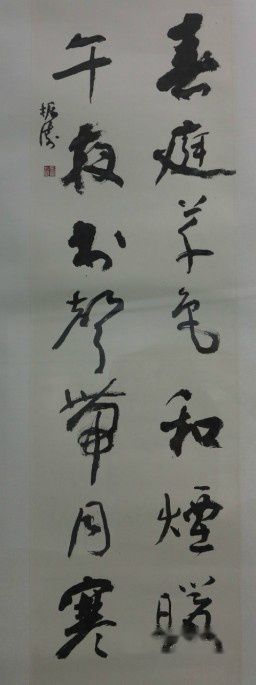 春庭草色和煙暖
午夜書聲帶月寒
振濤